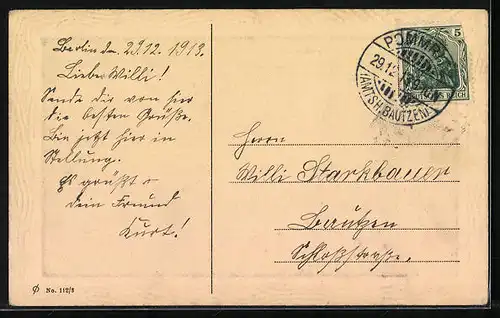 Berlin den 29.12.1913.
Lieber Willi!
Sende dir von hier
die besten Grüße.
Bin jetzt hier in
Stellung.
Es grüßt
dein Freund
Kurt!
No. 112/3
5
POMMRITZ
29.12
(AMTSH. BAUTZEN)
REICH
Herrn
Willi Starkbauer
Bautzen
Schloßstraße.